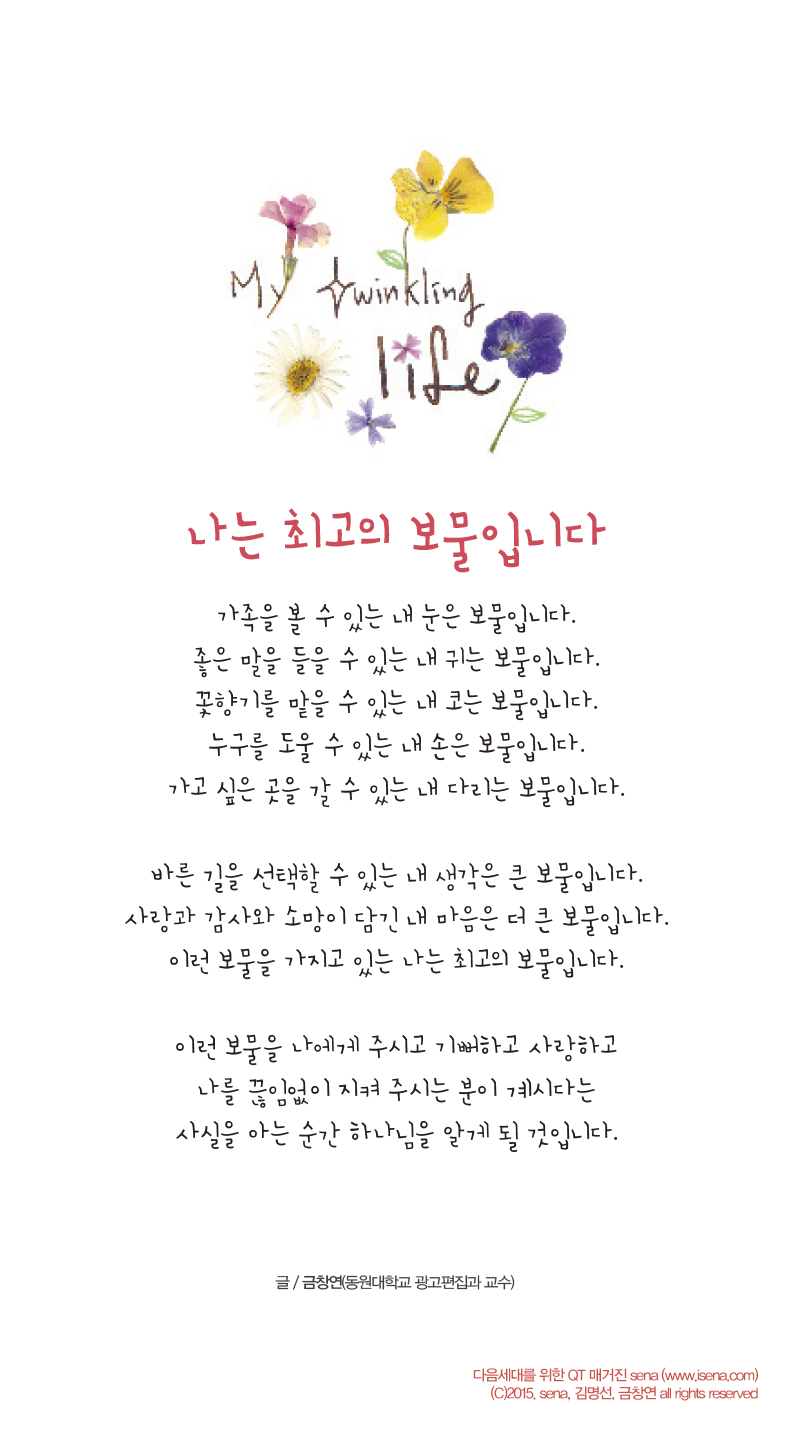 My twinkling
life
나는 최고의 보물입니다
가족을 볼 수 있는 내 눈은 보물입니다.
좋은 말을 들을 수 있는 내 귀는 보물입니다.
꽃향기를 맡을 수 있는 내 코는 보물입니다.
누구를 도울 수 있는 내 손은 보물입니다.
가고 싶은 곳을 갈 수 있는 내 다리는 보물입니다.
바른 길을 선택할 수 있는 내 생각은 큰 보물입니다.
사랑과 감사와 소망이 담긴 내 마음은 더 큰 보물입니다.
이런 보물을 가지고 있는 나는 최고의 보물입니다.
이런 보물을 나에게 주시고 기뻐하고 사랑하고
나를 끊임없이 지켜 주시는 분이 계시다는
사실을 아는 순간 하나님을 알게 될 것입니다.
글 / 금창연(동원대학교 광고편집과 교수)
다음세대를 위한 QT 매거진 sena (www.isena.com)
(C)2015, sena, 김명선, 금창연 all rights reserved